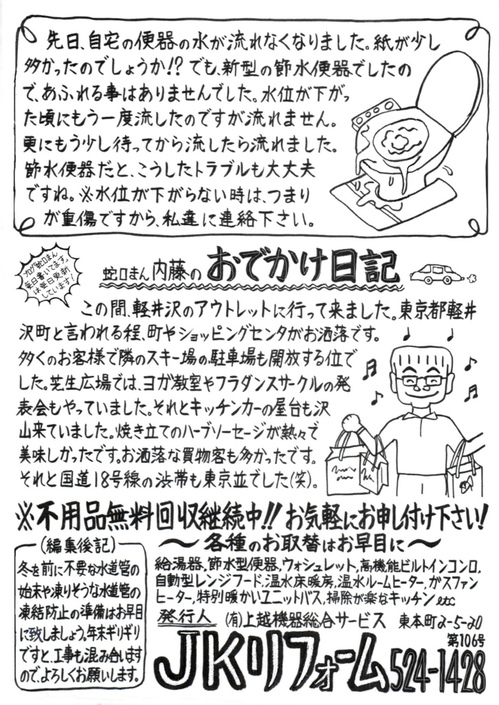 先日、自宅の便器の水が流れなくなりました。紙が少し
多かったのでしょうか!? でも、新型の節水便器でしたの
で、あふれる事はありませんでした。水位が下がっ
た頃にもう一度流したのですが流れません。
更にもう少し待ってから流したら流れました。
節水便器だと、こうしたトラブルも大丈夫
ですね。※水位が下がらない時は、つまり
が重傷ですから、私達に連絡下さい。
ブログ「蛇口まん」
毎日書いてます。
は毎日更新
しています!
蛇口まん 内藤の おでかけ日記
この間、軽井沢のアウトレットに行って来ました。東京都軽井
沢町と言われる程、町やショッピングセンタがお洒落です。
多くのお客様で隣のスキー場の駐車場も開放する位で
した。芝生広場では、ヨガ教室やフラダンスサークルの発
表会もやっていました。それとキッチンカーの屋台も沢
山来ていました。焼き立てのハーブソーセージが熱々で
美味しかったです。お洒落な買物客も多かったです。
それと国道18号線の渋滞も東京並でした(笑)。
※不用品無料回収継続中!! お気軽にお申し付け下さい!
〜各種のお取替はお早目に〜
給湯器、節水型便器、ウォシュレット、高機能ビルトインコンロ、
自動型レンジフード、温水床暖房、温水ルームヒーター、ガスファン
ヒーター、特別暖かいユニットバス、掃除が楽なキッチン etc
(編集後記)
冬を前に不要な水道管の
始末や凍りそうな水道管の
凍結防止の準備はお早目
に致しましょう。年末ギリギリ
ですと、工事も混み合います
のでよろしくお願いします。
発行人 (有)上越機器総合サービス 東本町2-5-20
第106号
JKリフォーム 524-1428